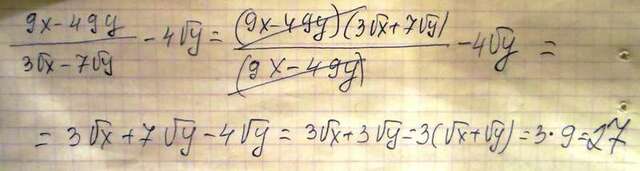 (9x-49y)/(3√x-7√y) - 4√y = (9x-49y)(3√x+7√y)/(9x-49y) - 4√y =
= 3√x+7√y-4√y = 3√x+3√y=3(√x+√y)=3·9=27